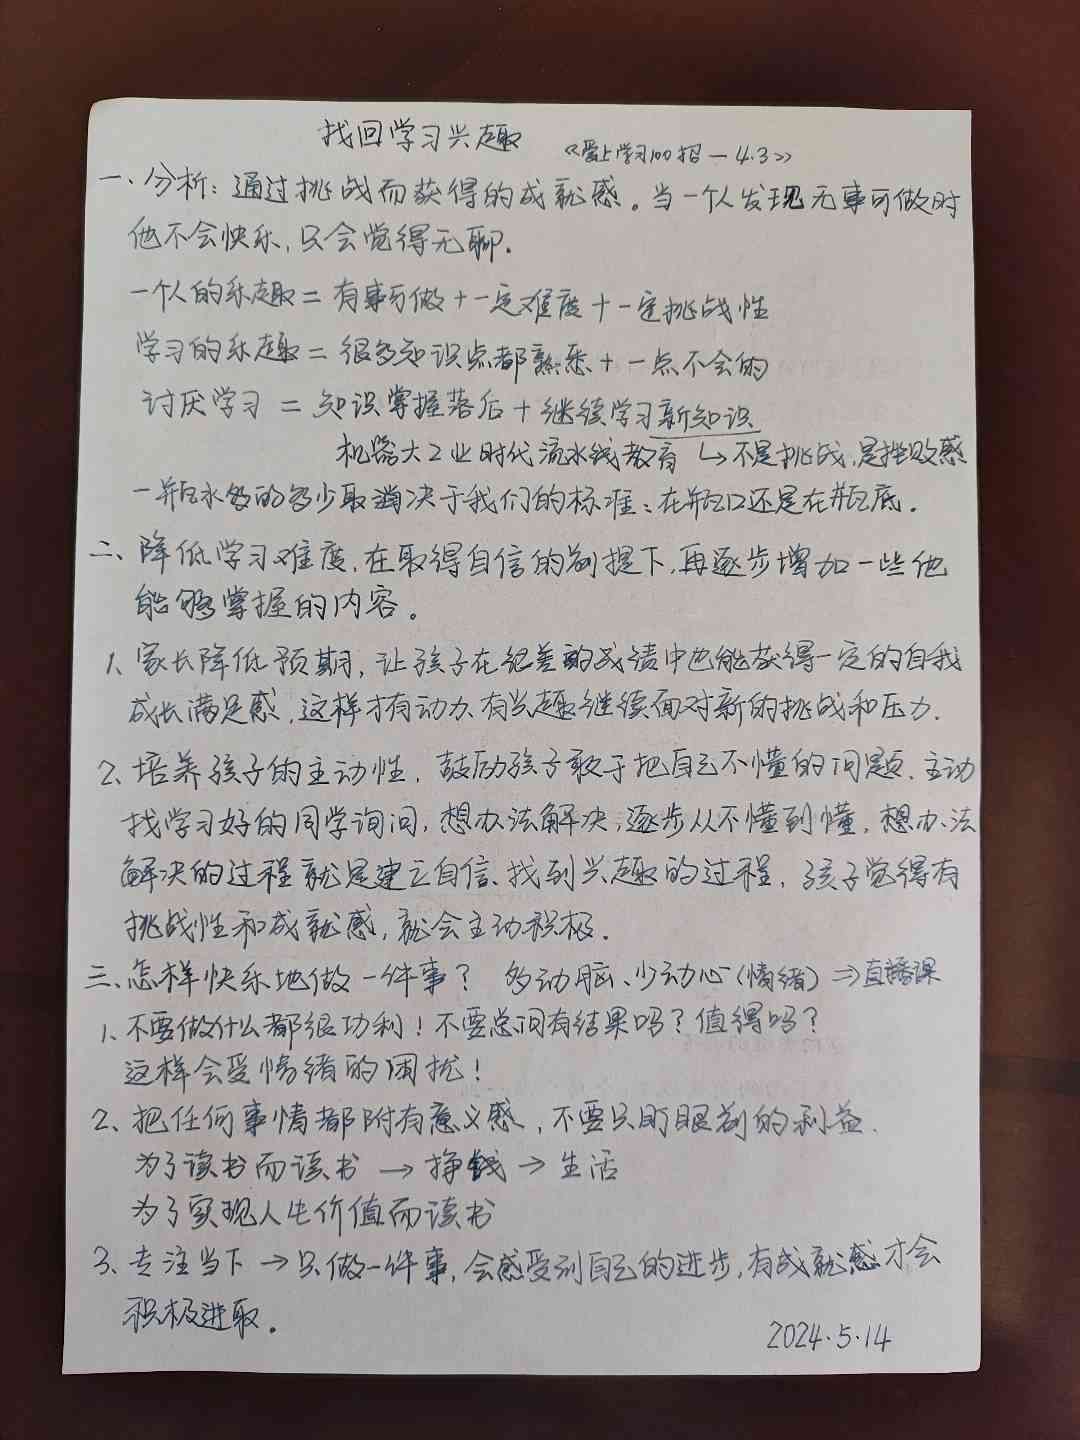 找回学习兴趣 《爱上学习100招—4.3》
一、分析：通过挑战而获得的成就感。当一个人发现无事可做时
他不会快乐，只会觉得无聊.
一个人的乐趣＝有事可做＋一定难度＋一定挑战性
学习的乐趣＝很多知识点都熟悉＋一点不会的
讨厌学习＝知识掌握落后＋继续学习新知识
机器大工业时代流水线教育 ↳不是挑战,是挫败感
一瓶水多的多少取决于我们的标准：在瓶口还是在瓶底.
二、降低学习难度，在取得自信的前提下，再逐步增加一些他
能够掌握的内容。
1、家长降低预期，让孩子在很差的成绩中也能获得一定的自我
成长满足感，这样才有动力、有兴趣继续面对新的挑战和压力.
2、培养孩子的主动性，鼓励孩子敢于把自己不懂的问题，主动
找学习好的同学询问，想办法解决，逐步从不懂到懂，想办法
解决的过程就是建立自信、找到兴趣的过程，孩子觉得有
挑战性和成就感，就会主动积极.
三、怎样快乐地做一件事？ 多动脑、少动心(情绪)⇒直播课
1、不要做什么都很功利！不要总问有结果吗？值得吗？
这样会受情绪的困扰！
2、把任何事情都附有意义感，不要只盯眼前的利益.
为了读书而读书→挣钱→生活
为了实现人生价值而读书
3、专注当下→只做一件事，会感受到自己的进步，有成就感才会
积极进取。
2024.5.14